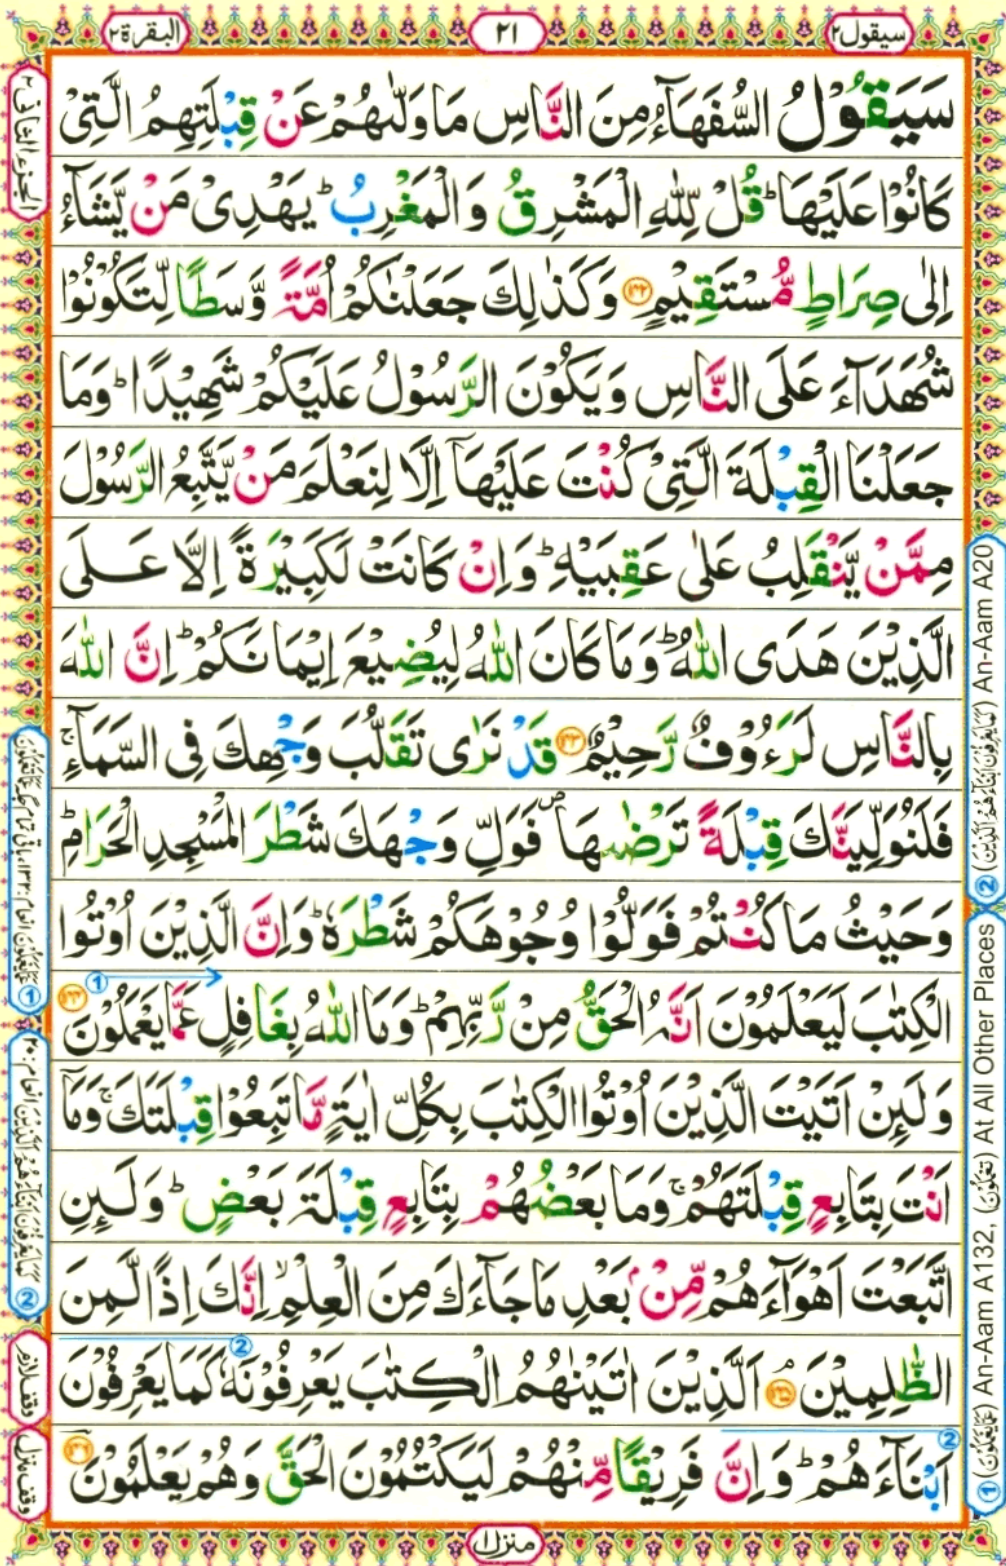 سيقول٢
٢١
البقرة٢
سَيَقُوْلُ السُّفَهَآءُ مِنَ النَّاسِ مَا وَلّٰىهُمْ عَنْ قِبْلَتِهِمُ الَّتِىْ
كَانُوْا عَلَيْهَا ؕ قُلْ لِّلّٰهِ الْمَشْرِقُ وَ الْمَغْرِبُ ؕ يَهْدِىْ مَنْ يَّشَآءُ
اِلٰى صِرَاطٍ مُّسْتَقِيْمٍ ﴿۱۴۲﴾ وَ كَذٰلِكَ جَعَلْنٰكُمْ اُمَّةً وَّسَطًا لِّتَكُوْنُوْا
شُهَدَآءَ عَلَى النَّاسِ وَ يَكُوْنَ الرَّسُوْلُ عَلَيْكُمْ شَهِيْدًا ؕ وَمَا
جَعَلْنَا الْقِبْلَةَ الَّتِىْ كُنْتَ عَلَيْهَآ اِلَّا لِنَعْلَمَ مَنْ يَّتَّبِعُ الرَّسُوْلَ
مِمَّنْ يَّنْقَلِبُ عَلٰى عَقِبَيْهِ ؕ وَ اِنْ كَانَتْ لَكَبِيْرَةً اِلَّا عَلَى
الَّذِيْنَ هَدَى اللّٰهُ ؕ وَمَا كَانَ اللّٰهُ لِيُضِيْعَ اِيْمَانَكُمْ ؕ اِنَّ اللّٰهَ
بِالنَّاسِ لَرَءُوْفٌ رَّحِيْمٌ ﴿۱۴۳﴾ قَدْ نَرٰى تَقَلُّبَ وَجْهِكَ فِى السَّمَآءِ ۚ
فَلَنُوَلِّيَنَّكَ قِبْلَةً تَرْضٰىهَا ۪ فَوَلِّ وَجْهَكَ شَطْرَ الْمَسْجِدِ الْحَرَامِ ؕ
وَحَيْثُ مَا كُنْتُمْ فَوَلُّوْا وُجُوْهَكُمْ شَطْرَهٗ ؕ وَ اِنَّ الَّذِيْنَ اُوْتُوا
الْكِتٰبَ لَيَعْلَمُوْنَ اَنَّهُ الْحَقُّ مِنْ رَّبِّهِمْ ؕ وَمَا اللّٰهُ بِغَافِلٍ عَمَّا يَعْمَلُوْنَ ① ﴿۱۴۴﴾
وَلَئِنْ اَتَيْتَ الَّذِيْنَ اُوْتُوا الْكِتٰبَ بِكُلِّ اٰيَةٍ مَّا تَبِعُوْا قِبْلَتَكَ ۚ وَمَآ
اَنْتَ بِتَابِعٍ قِبْلَتَهُمْ ۚ وَمَا بَعْضُهُمْ بِتَابِعٍ قِبْلَةَ بَعْضٍ ؕ وَلَئِنِ
اتَّبَعْتَ اَهْوَآءَهُمْ مِّنْۢ بَعْدِ مَا جَآءَكَ مِنَ الْعِلْمِ ۙ اِنَّكَ اِذًا لَّمِنَ
الظّٰلِمِيْنَ ۘ ﴿۱۴۵﴾ اَلَّذِيْنَ اٰتَيْنٰهُمُ الْكِتٰبَ يَعْرِفُوْنَهٗ ② كَمَا يَعْرِفُوْنَ
② اَبْنَآءَهُمْ ؕ وَ اِنَّ فَرِيْقًا مِّنْهُمْ لَيَكْتُمُوْنَ الْحَقَّ وَهُمْ يَعْلَمُوْنَ ﴿۱۴۶﴾
منزل١
الجزء الثانى ٢
وقف لازم
وقف منزل
① (عَمَّا يَعْمَلُوْنَ) An-Aam A132, (تَعْمَلُوْنَ) At All Other Places ② (كَمَا يَعْرِفُوْنَ اَبْنَآءَهُمْ اَلَّذِيْنَ) An-Aam A20
② كَمَا يَعْرِفُوْنَ اَبْنَآءَهُمْ اَلَّذِيْنَ انعام ٢٠